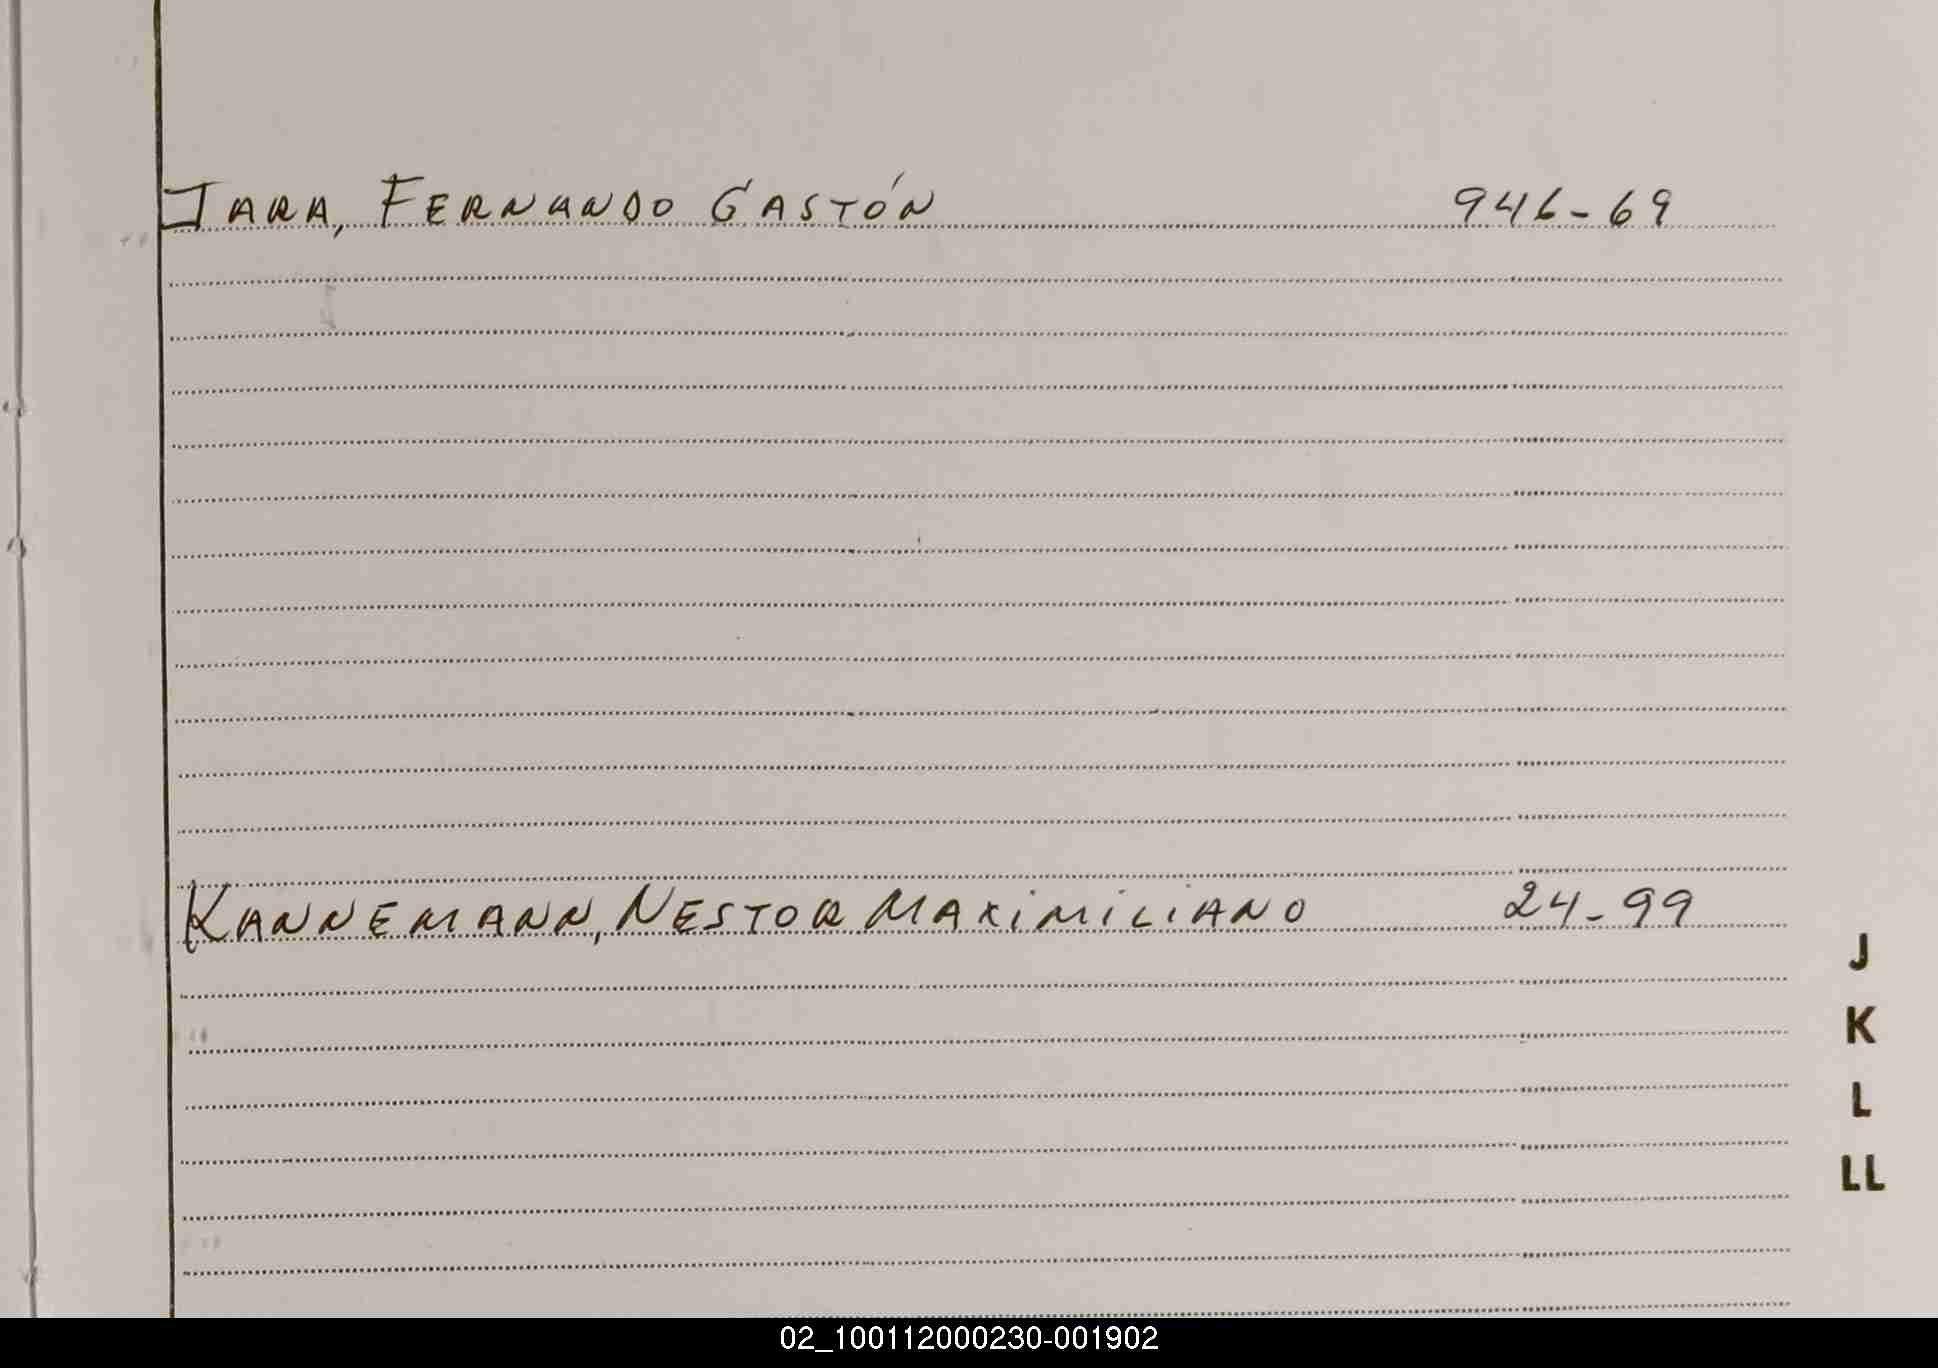 JARA, FERNANDO GASTÓN 946-69
KANNEMANN, NESTOR MAXIMILIANO 24-99
J
K
L
LL
02_100112000230-001902